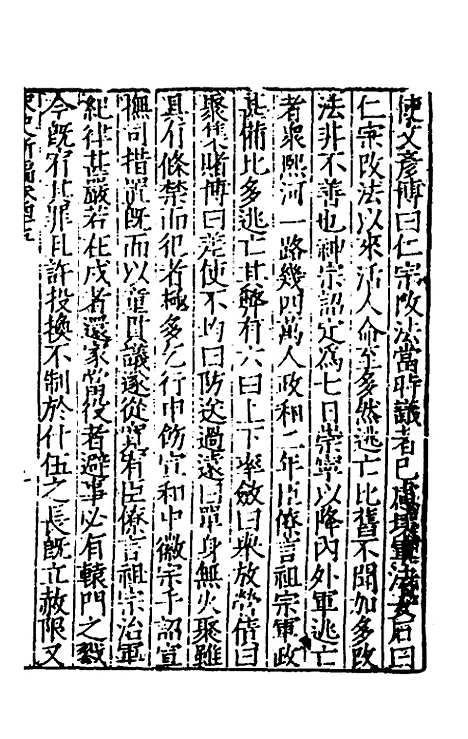 使文彥博曰仁宗改法當時議者已慮壞軍法安石曰
仁宗改法以來活人命至多然逃亡比舊不聞加多改
法非不善也神宗詔定為七日崇寧以降內外軍逃亡
者眾熙河一路幾四萬人政和二年臣僚言祖宗軍政
甚備比多逃亡其弊有六曰上下率斂曰聚放營債曰
聚集賭博曰差使不均曰防送過遠曰單身無火聚雖
具有條禁而犯者極多乞行申飭宣和中徽宗手詔宣
撫司措置既而以童貫議遂從寬有臣僚言祖宗治軍
紀律甚嚴若在戍者還家當役者避事必有轅門之戮
今既宥其罪且許投換不制於什伍之長既立赦限又
宋史新編卷四十五